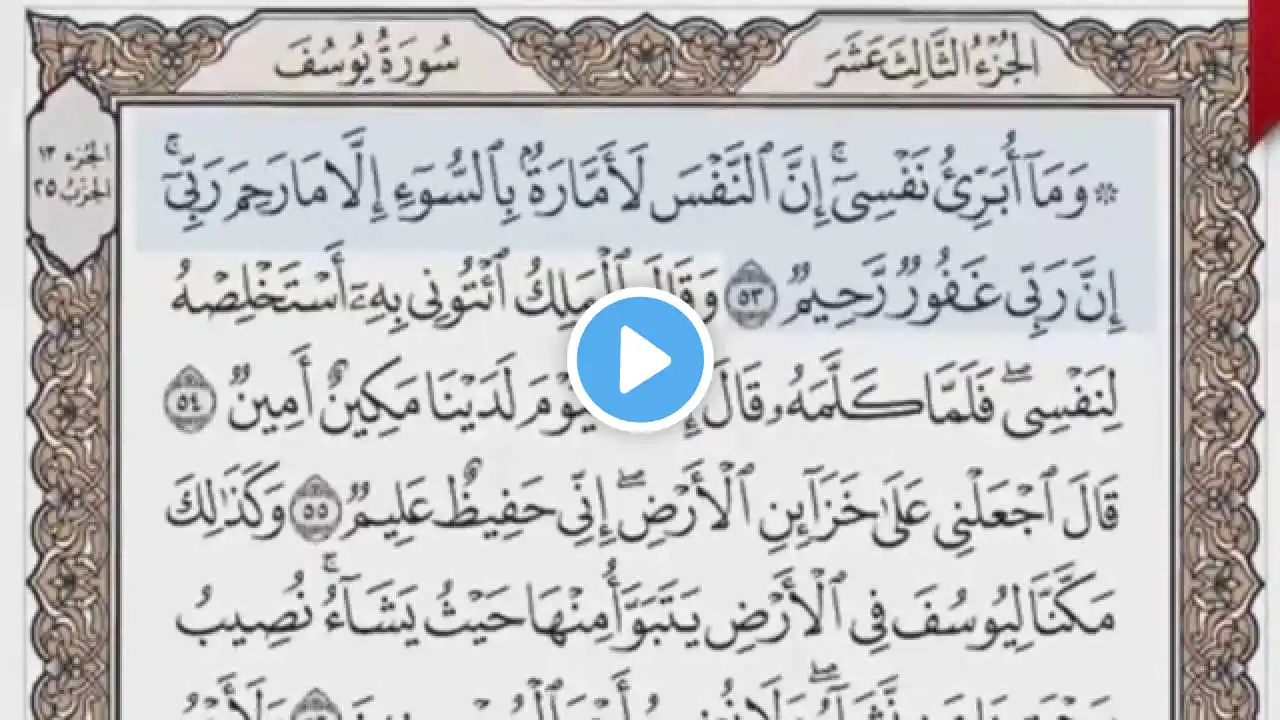 الجُزْءُ الثَّالِثَ عَشَرَ
سُورَةُ يُوسُفَ
الجُزء ١٣
الحِزْبُ ٢٥
۞ وَمَآ أُبَرِّئُ نَفۡسِيٓۚ إِنَّ ٱلنَّفۡسَ لَأَمَّارَةُۢ بِٱلسُّوٓءِ إِلَّا مَا رَحِمَ رَبِّيٓۚ
إِنَّ رَبِّي غَفُورٞ رَّحِيمٞ ٥٣ وَقَالَ ٱلۡمَلِكُ ٱئۡتُونِي بِهِۦٓ أَسۡتَخۡلِصۡهُ
لِنَفۡسِيۖ فَلَمَّا كَلَّمَهُۥ قَالَ لَدَيۡنَا مَكِينٌ أَمِينٞ ٥٤
قَالَ ٱجۡعَلۡنِي عَلَىٰ خَزَآئِنِ ٱلۡأَرۡضِۖ إِنِّي حَفِيظٌ عَلِيمٞ ٥٥ وَكَذَٰلِكَ
مَكَّنَّا لِيُوسُفَ فِي ٱلۡأَرۡضِ يَتَبَوَّأُ مِنۡهَا حَيۡثُ يَشَآءُۚ نُصِيبُ